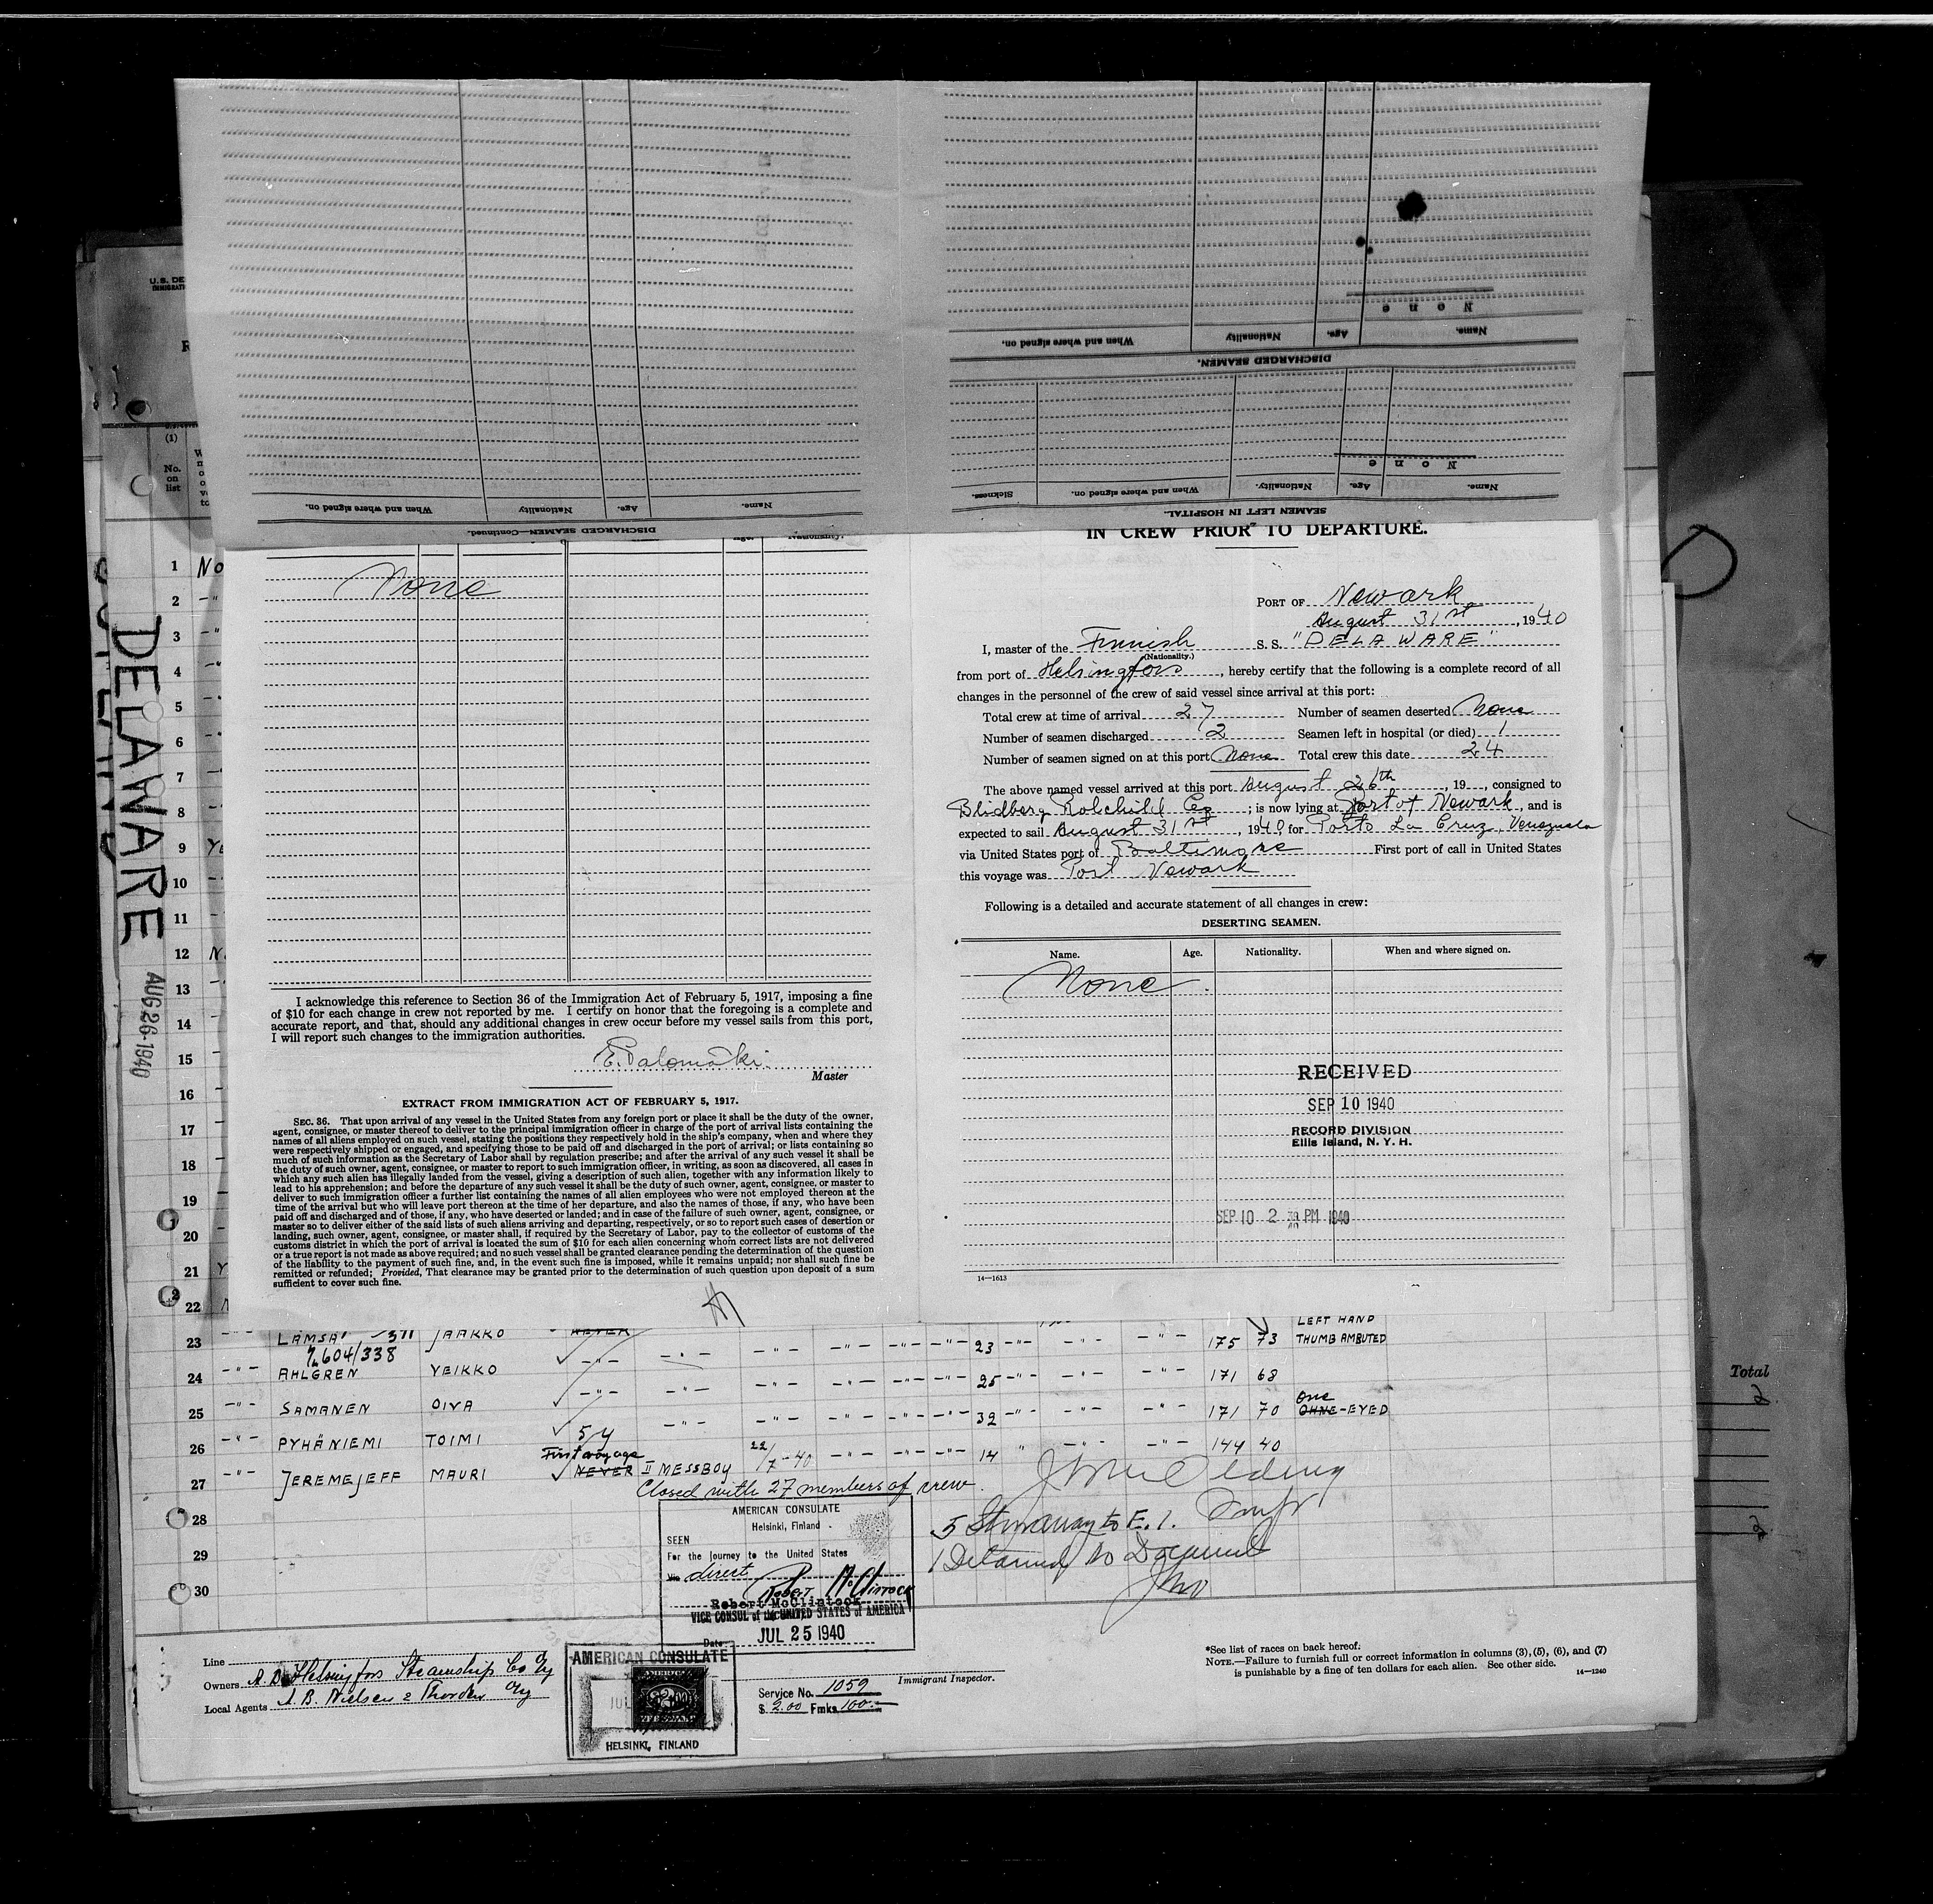 When and where signed on.
Nationality
Age.
Name.
DISCHARGED SEAMEN—Continued.
None
When and where signed on.
Nationality
Age.
Name.
DISCHARGED SEAMEN.
None
Sickness.
When and where signed on.
Nationality.
Age.
Name.
SEAMEN LEFT IN HOSPITAL.
(1)
No.
on
list
DELAWARE
AUG 26 1940
1 No
2 -"
3 -"
4
5
6
7
8
9
10
11
12
13
14
15
16
17
18
19
20
21
22
None
I acknowledge this reference to Section 36 of the Immigration Act of February 5, 1917, imposing a fine
of $10 for each change in crew not reported by me. I certify on honor that the foregoing is a complete and
accurate report, and that, should any additional changes in crew occur before my vessel sails from this port,
I will report such changes to the immigration authorities.
E. Palomäki
Master
EXTRACT FROM IMMIGRATION ACT OF FEBRUARY 5, 1917.
SEC. 36. That upon arrival of any vessel in the United States from any foreign port or place it shall be the duty of the owner,
agent, consignee, or master thereof to deliver to the principal immigration officer in charge of the port of arrival lists containing the
names of all aliens employed on such vessel, stating the positions they respectively hold in the ship's company, when and where they
were respectively shipped or engaged, and specifying those to be paid off and discharged in the port of arrival; or lists containing so
much of such information as the Secretary of Labor shall by regulation prescribe; and after the arrival of any such vessel it shall be
the duty of such owner, agent, consignee, or master to report to such immigration officer, in writing, as soon as discovered, all cases in
which any such alien has illegally landed from the vessel, giving a description of such alien, together with any information likely to
lead to his apprehension; and before the departure of any such vessel it shall be the duty of such owner, agent, consignee, or master to
deliver to such immigration officer a further list containing the names of all alien employees who were not employed thereon at the
time of the arrival but who will leave port thereon at the time of her departure, and also the names of those, if any, who have been
paid off and discharged and of those, if any, who have deserted or landed; and in case of the failure of such owner, agent, consignee, or
master so to deliver either of the said lists of such aliens arriving and departing, respectively, or so to report such cases of desertion or
landing, such owner, agent, consignee, or master shall, if required by the Secretary of Labor, pay to the collector of customs of the
customs district in which the port of arrival is located the sum of $10 for each alien concerning whom correct lists are not delivered
or a true report is not made as above required; and no such vessel shall be granted clearance pending the determination of the question
of the liability to the payment of such fine, and, in the event such fine is imposed, while it remains unpaid; nor shall such fine be
remitted or refunded; Provided, That clearance may be granted prior to the determination of such question upon deposit of a sum
sufficient to cover such fine.
IN CREW PRIOR TO DEPARTURE.
PORT OF Newark
August 31st, 1940
I, master of the Finnish S. S. "DELAWARE"
(Nationality.)
from port of Helsingfors, hereby certify that the following is a complete record of all
changes in the personnel of the crew of said vessel since arrival at this port:
Total crew at time of arrival 27 Number of seamen deserted None
Number of seamen discharged 2 Seamen left in hospital (or died) 1
Number of seamen signed on at this port None Total crew this date 24
The above named vessel arrived at this port August 26th, 19 , consigned to
Blidberg Rotchild Co; is now lying at Port of Newark, and is
expected to sail August 31st, 1940, for Porto La Cruz, Venezuela
via United States port of Baltimore First port of call in United States
this voyage was Port Newark
Following is a detailed and accurate statement of all changes in crew:
DESERTING SEAMEN.
Name. Age. Nationality. When and where signed on.
None
RECEIVED
SEP 10 1940
RECORD DIVISION
Ellis Island, N. Y. H.
SEP 10 2 PM 1940
14—1613
LEFT HAND
23 -"- LAMSA JAAKKO NEVER 23 175 73 THUMB AMBUTED
604/338
24 -"- AHLGREN VEIKKO -"- 25 171 68
25 -"- SAMANEN OIVA -"- 32 171 70 One OHNE-EYED
26 -"- PYHÄNIEMI TOIMI 5y 14 144 40
First voyage
27 -"- JEREMEJEFF MAURI NEVER II MESSBOY 22/7-40
Closed with 27 members of crew.
28
29
30
5 Stowaway to E. I.
1 Detained No Document
AMERICAN CONSULATE
Helsinki, Finland
SEEN
For the journey to the United States
Via direct
Robert McClintock
Robert McClintock
VICE CONSUL of the UNITED STATES of AMERICA
Date JUL 25 1940
Line
Owners A. B. Helsingfors Steamship Co Oy
Local Agents A. B. Nielsen & Thorden Oy
AMERICAN CONSULATE
HELSINKI, FINLAND
Service No. 1059
$ 2.00 Fmks 100.-
Immigrant Inspector.
*See list of races on back hereof.
NOTE.—Failure to furnish full or correct information in columns (3), (5), (6), and (7)
is punishable by a fine of ten dollars for each alien. See other side. 14—1240
Total
2
2